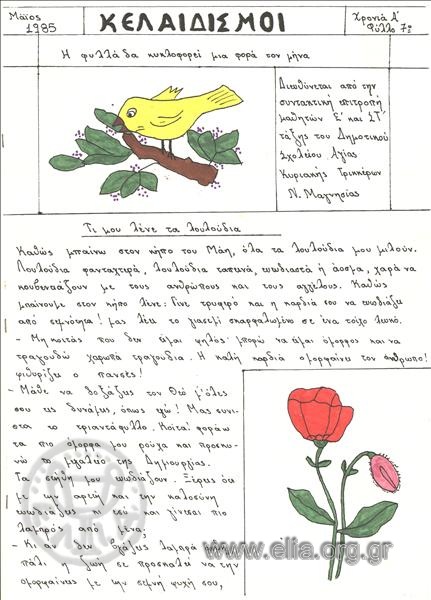 Μάϊος 1985
ΚΕΛΑΙΔΙΣΜΟΙ
Χρονιά Α'
Φύλλο 7ο
Η φυλλάδα κυκλοφορεί μια φορά τον μήνα
Διευθύνεται από την
συντακτική επιτροπή
μαθητών Ε' και ΣΤ'
τάξης του Δημοτικού
Σχολείου Αγίας
Κυριακής Τρικκέρων
Ν. Μαγνησίας
Τι μου λένε τα λουλούδια
Καθώς μπαίνω στον κήπο του Μάη, όλα τα λουλούδια μου μιλούν.
Λουλούδια φανταχτερά, λουλούδια ταπεινά, μυρωδιαστά ή άοσμα, χαρά να
κουβεντιάζουν με τους ανθρώπους και τους αγγέλους. Καθώς
μπαίνουμε στον κήπο λένε: Γίνε τρυφερό και η καρδιά σου να ευωδιάζει
από σεμνότητα! μας λέει το γιασεμί σκαρφαλωμένο σε ένα τοίχο λευκό.
- Μη κοιτάς που δεν είμαι ψηλός! μπορώ να είμαι όμορφος και να
τραγουδώ χαρωπά τραγούδια. Η καλή καρδιά ομορφαίνει τον άνθρωπο!
ψιθυρίζει ο πανσές!
- Μάθε να δοξάζεις τον Θεό μ' όλες
σου τις δυνάμεις, όπως εγώ! Μας συνι-
στα το τριαντάφυλλο. Κοίτα! φοράω
τα πιο όμορφα μου ρούχα και προσκυ-
νώ το μεγαλείο της Δημιουργίας.
Τα στήθη μου ευωδιάζουν. Ξέρεις ότι
με την αρετή και την καλοσύνη
ευωδιάζεις και εσύ και γίνεσαι πιο
λαμπρός από μένα,
- Κι αν δεν φαντάζεις λαμπρά
πάλι η ζωή σε προσκαλεί να την
ομορφαίνεις με την σεμνή ψυχή σου,
www.elia.org.gr